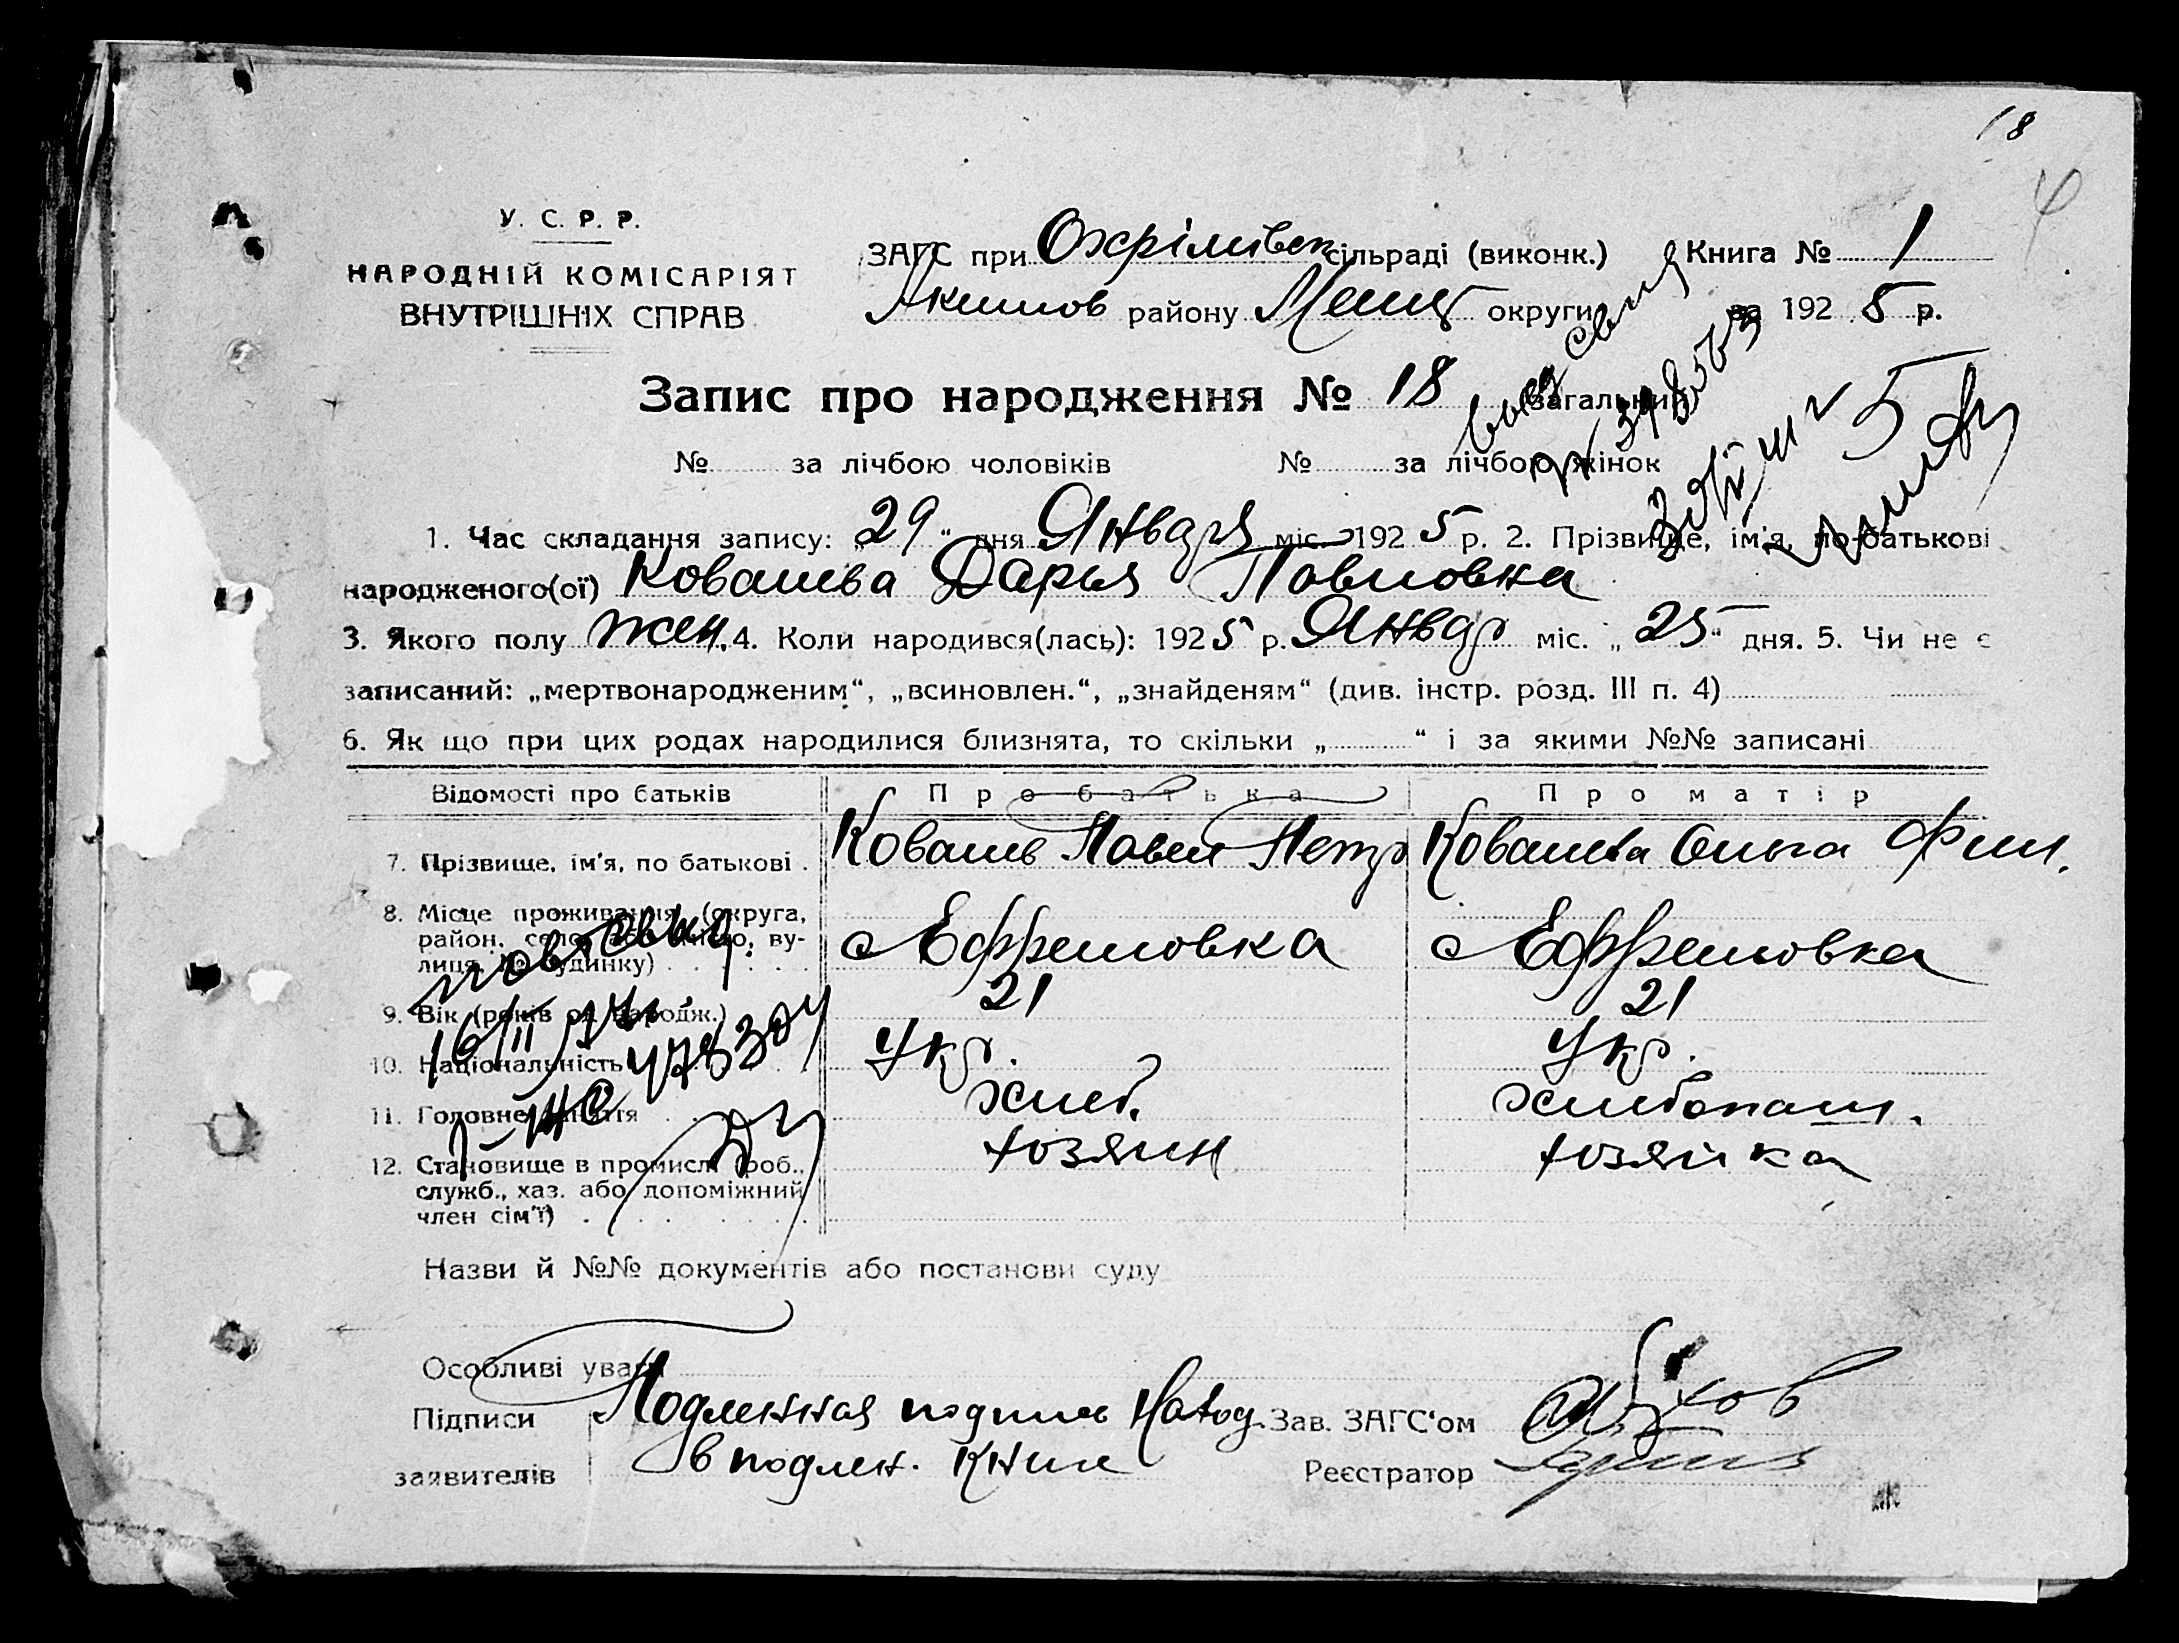 18
У. С. Р. Р.
НАРОДНІЙ КОМІСАРІЯТ
ВНУТРІШНІХ СПРАВ
ЗАГС при Охрімівск сільраді (виконк.) Книга № 1
Акимов района Меліт округи за 1925 р.
Запис про народження № 18 загальний
№ за лічбою чоловіків № за лічбою жінок
1. Час складання запису: „29“ дня Января міс. 1925 р. 2. Прізвище, ім'я, по-батькові
народженого(ої) Ковалева Дарья Павловна
3. Якого полу жен. 4. Коли народився(лась): 1925 р. Январ міс. „25“ дня. 5. Чи не є
записаний: „мертвонародженим“, „всиновлен.“, „знайденям“ (див. інстр. розд. III п. 4)
6. Як що при цих родах народилися близнята, то скільки „ “ і за якими №№ записані
Відомості про батьків Про батька Про матір
7. Прізвище, ім'я, по батькові . Ковалев Павел Петр Ковалева Ольга Фил.
8. Місце проживання (округа,
район, село або місто, ву-
лиця, № будинку) с Ефремовка с Ефремовка
9. Вік (років од народж.) 21 21
10. Національність Укр. Укр.
11. Головне заняття хлеб. хлебопаш.
12. Становище в промислі (роб., хозяин хозяйка
служб., хаз. або допоміжний
член сім'ї)
повторно
16/II
Назви й №№ документів або постанови суду
Особливі уваги
Підписи Подленная подпись Наход. Зав. ЗАГС'ом
заявителів в подлен. книге Реєстратор